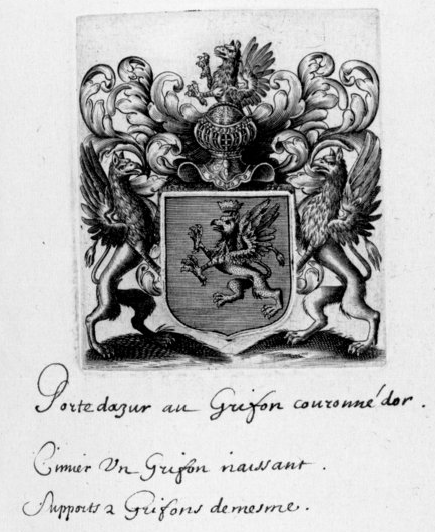 Porte dazur au Grifon couronné dor.
Cimier Un Grifon naissant.
Supports 2 Grifons demesme.